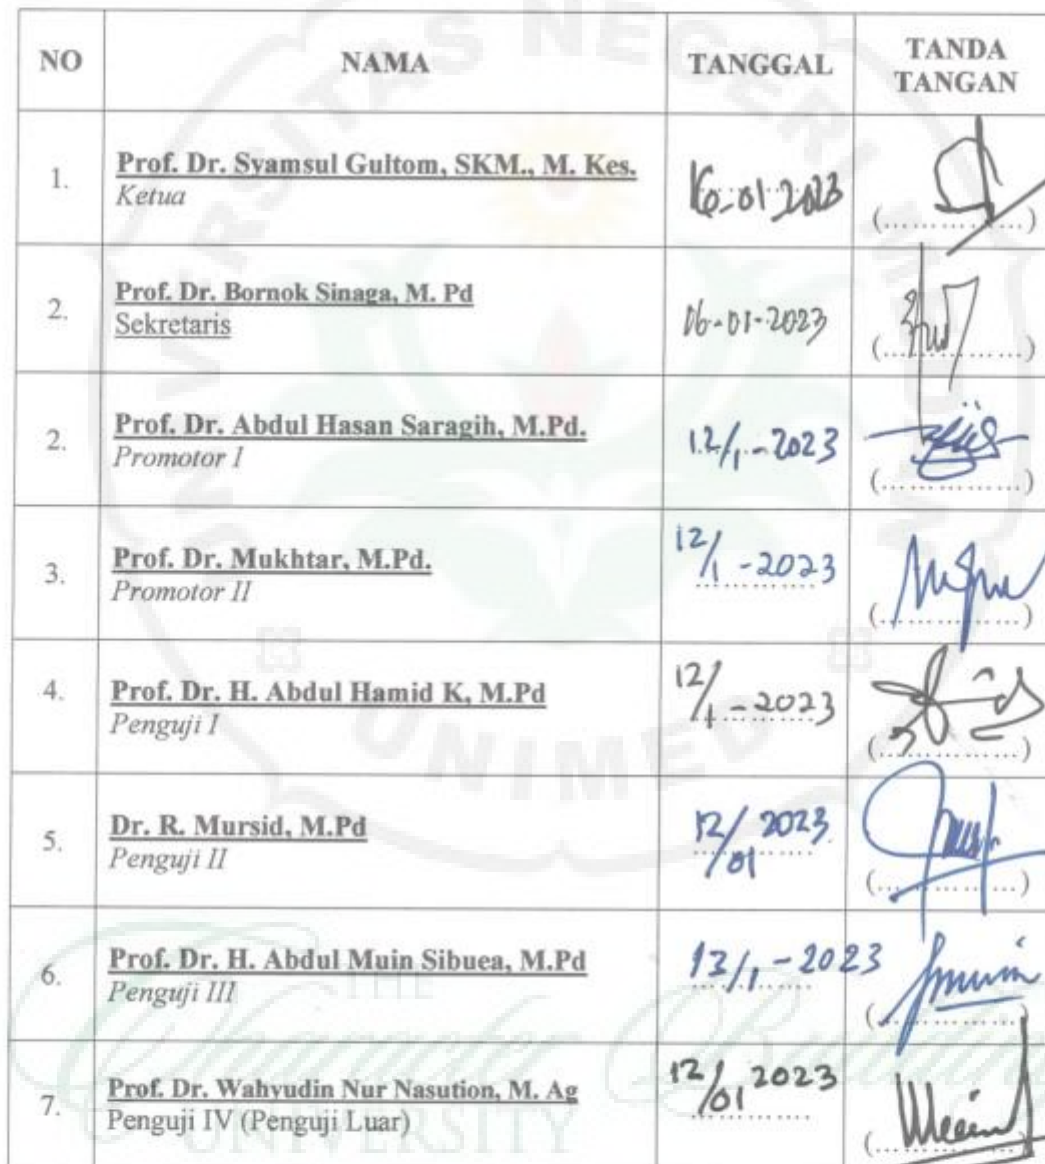 NO NAMA TANGGAL TANDA TANGAN
1. Prof. Dr. Syamsul Gultom, SKM., M. Kes.
Ketua
16-01-2023
(..............)
2. Prof. Dr. Bornok Sinaga, M. Pd
Sekretaris
16-01-2023
(..............)
2. Prof. Dr. Abdul Hasan Saragih, M.Pd.
Promotor I
12/1-2023
(..............)
3. Prof. Dr. Mukhtar, M.Pd.
Promotor II
12/1-2023
(..............)
4. Prof. Dr. H. Abdul Hamid K, M.Pd
Penguji I
12/1-2023
(..............)
5. Dr. R. Mursid, M.Pd
Penguji II
12/01 2023
(..............)
6. Prof. Dr. H. Abdul Muin Sibuea, M.Pd
Penguji III
13/1-2023
(..............)
7. Prof. Dr. Wahyudin Nur Nasution, M. Ag
Penguji IV (Penguji Luar)
12/01 2023
(..............)
UNIVERSITAS NEGERI MEDAN
UNIMED
THE
Character Building
UNIVERSITY